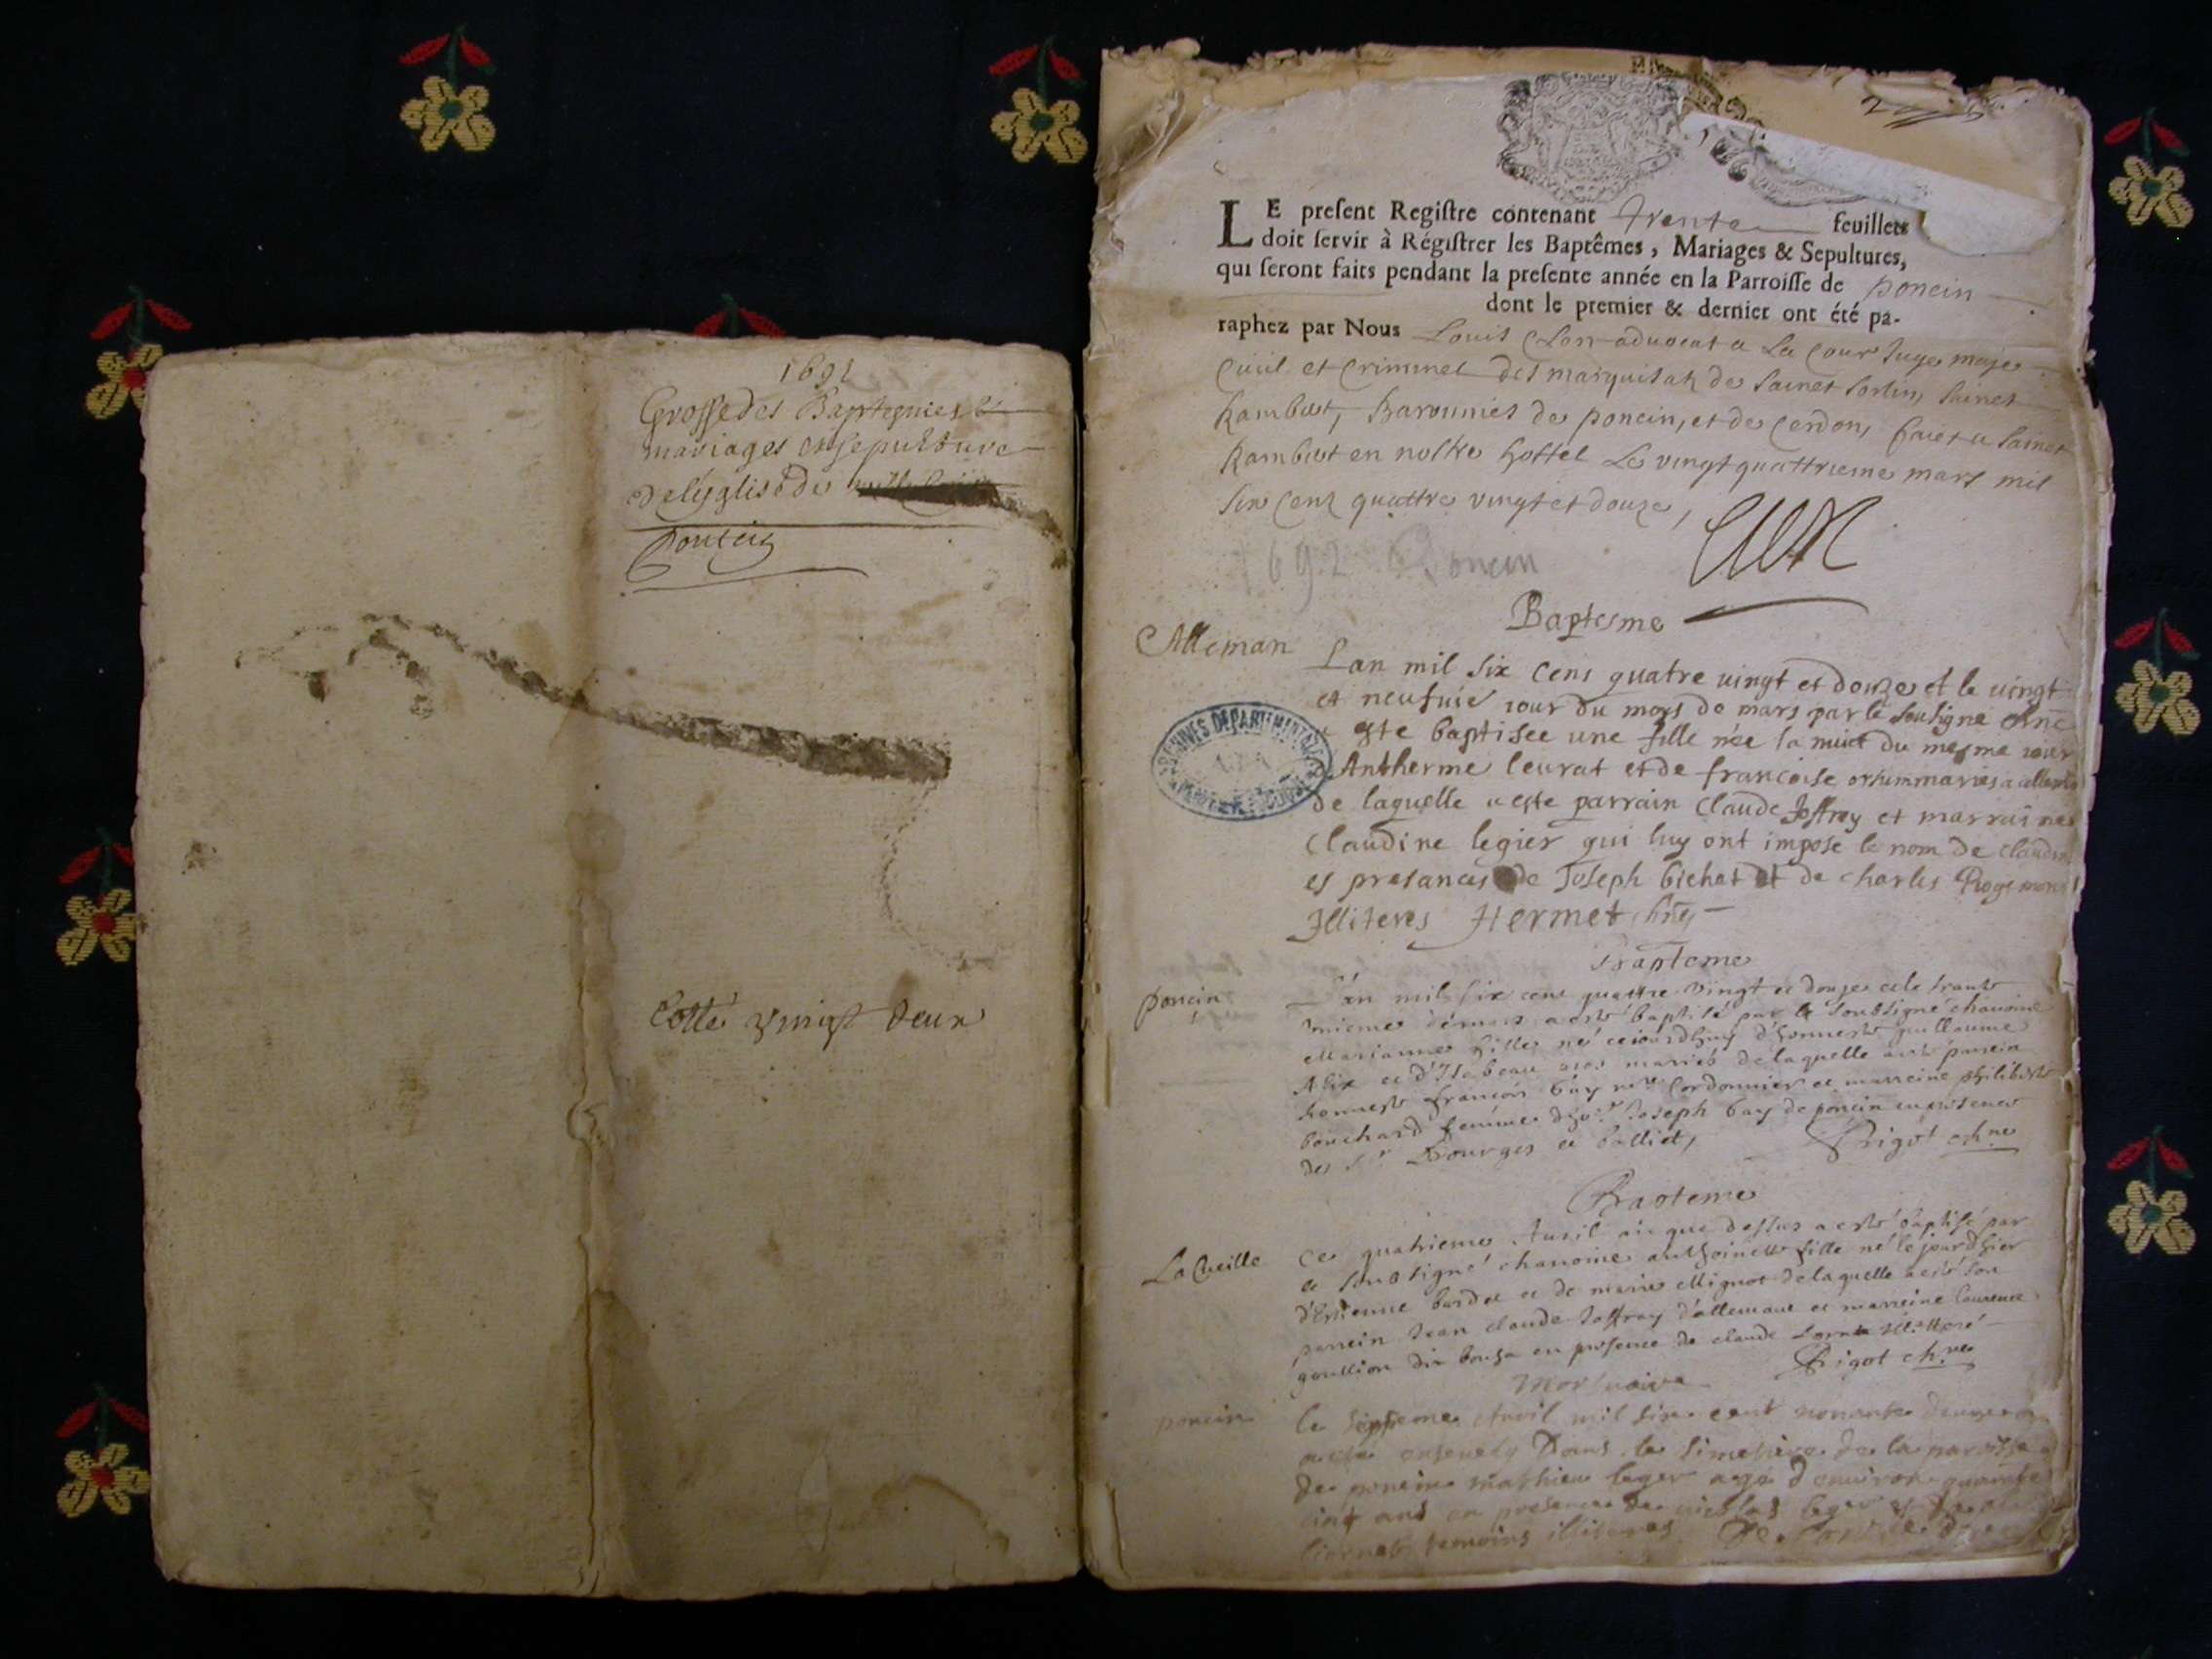 1692
Grosse des Baptesmes &
mariages et sepulture
de l'église de
Poncin
Cotté vingt deux
2
LE preſent Regiſtre contenant trente feuillets
doit ſervir à Régiſtrer les Baptêmes, Mariages & Sepultures,
qui ſeront faits pendant la preſente année en la Parroiſſe de poncin
dont le premier & dernier ont été pa-
raphez par Nous Louis advocat a La Cour Juge maje
Civil et Criminel des marquisatz de sainct sorlin, sainct
Rambert, Baronnies de poncin, et de Cerdon, faict a sainct
Rambert en nostre hostel Le vingt quattrieme mars mil
six cens quattre vingt et douze,
1692 Poncin
Baptesme
Alleman
Lan mil six cens quatre vingt et douze et le vingt
et neufuie iour du moys de mars par le sousigne chne
a este baptisee une fille née la nuict du mesme iour
d'Antherme leurat et de francoise mariés a
de laquelle a este parrain Claude Joffray et marraine
Claudine legier qui luy ont imposé le nom de claudine
es presances de Joseph bichat et de charles
Illiteres Hermet chne
Bapteme
poncin
L'an mil six cent quattre vingt et douze et le trante
unieme de mars a esté baptisé par le soussigné chanoine
Marianne fille né ce iourdhuy d'honneste guillaume
Alix et d'Isabeau mariés de laquelle a esté parrein
honneste francois buy Cordonnier et marreine philiberte
bouchard femme Joseph buy de poncin en presence
de Sr Bourges et balliet, Rigot chne
Bapteme
La Cueille
Ce quatrieme Auril an que dessus a esté baptisé par
le soussigné chanoine anthoinette fille né le jour d'hier
d'Estienne bardet et de marie Mignot de laquelle a esté son
parrein Jean claude Joffray d'allemant et marreine laurence
goullion dit bonsa en presence de claude illitteré
Rigot chne
Mortuaire
poncin
le septieme Auril mil six cent nonante deux
a esté enseuely Dans le simetiere de la paroisse
de poncin mathieu leger agé d'enuiron quarante
cinq ans en presence de nicolas leger et de
temoins illiteres
ARCHIVES DEPARTEMENTALES
AIN